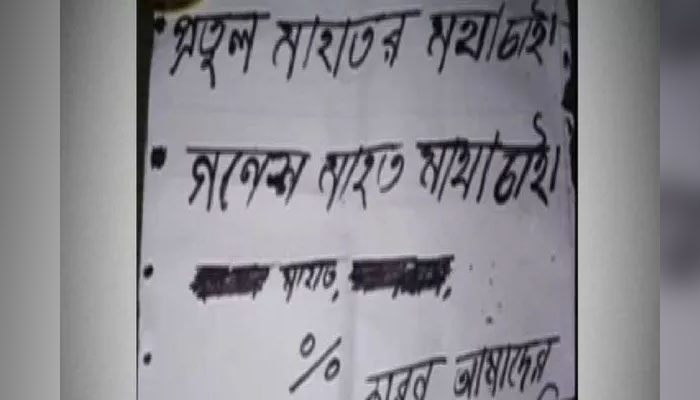 প্রতুল মাহাতর মথা চাই।
গনেশ মাহত মাথা চাই।
মাহাত,
% কারন আমাদের